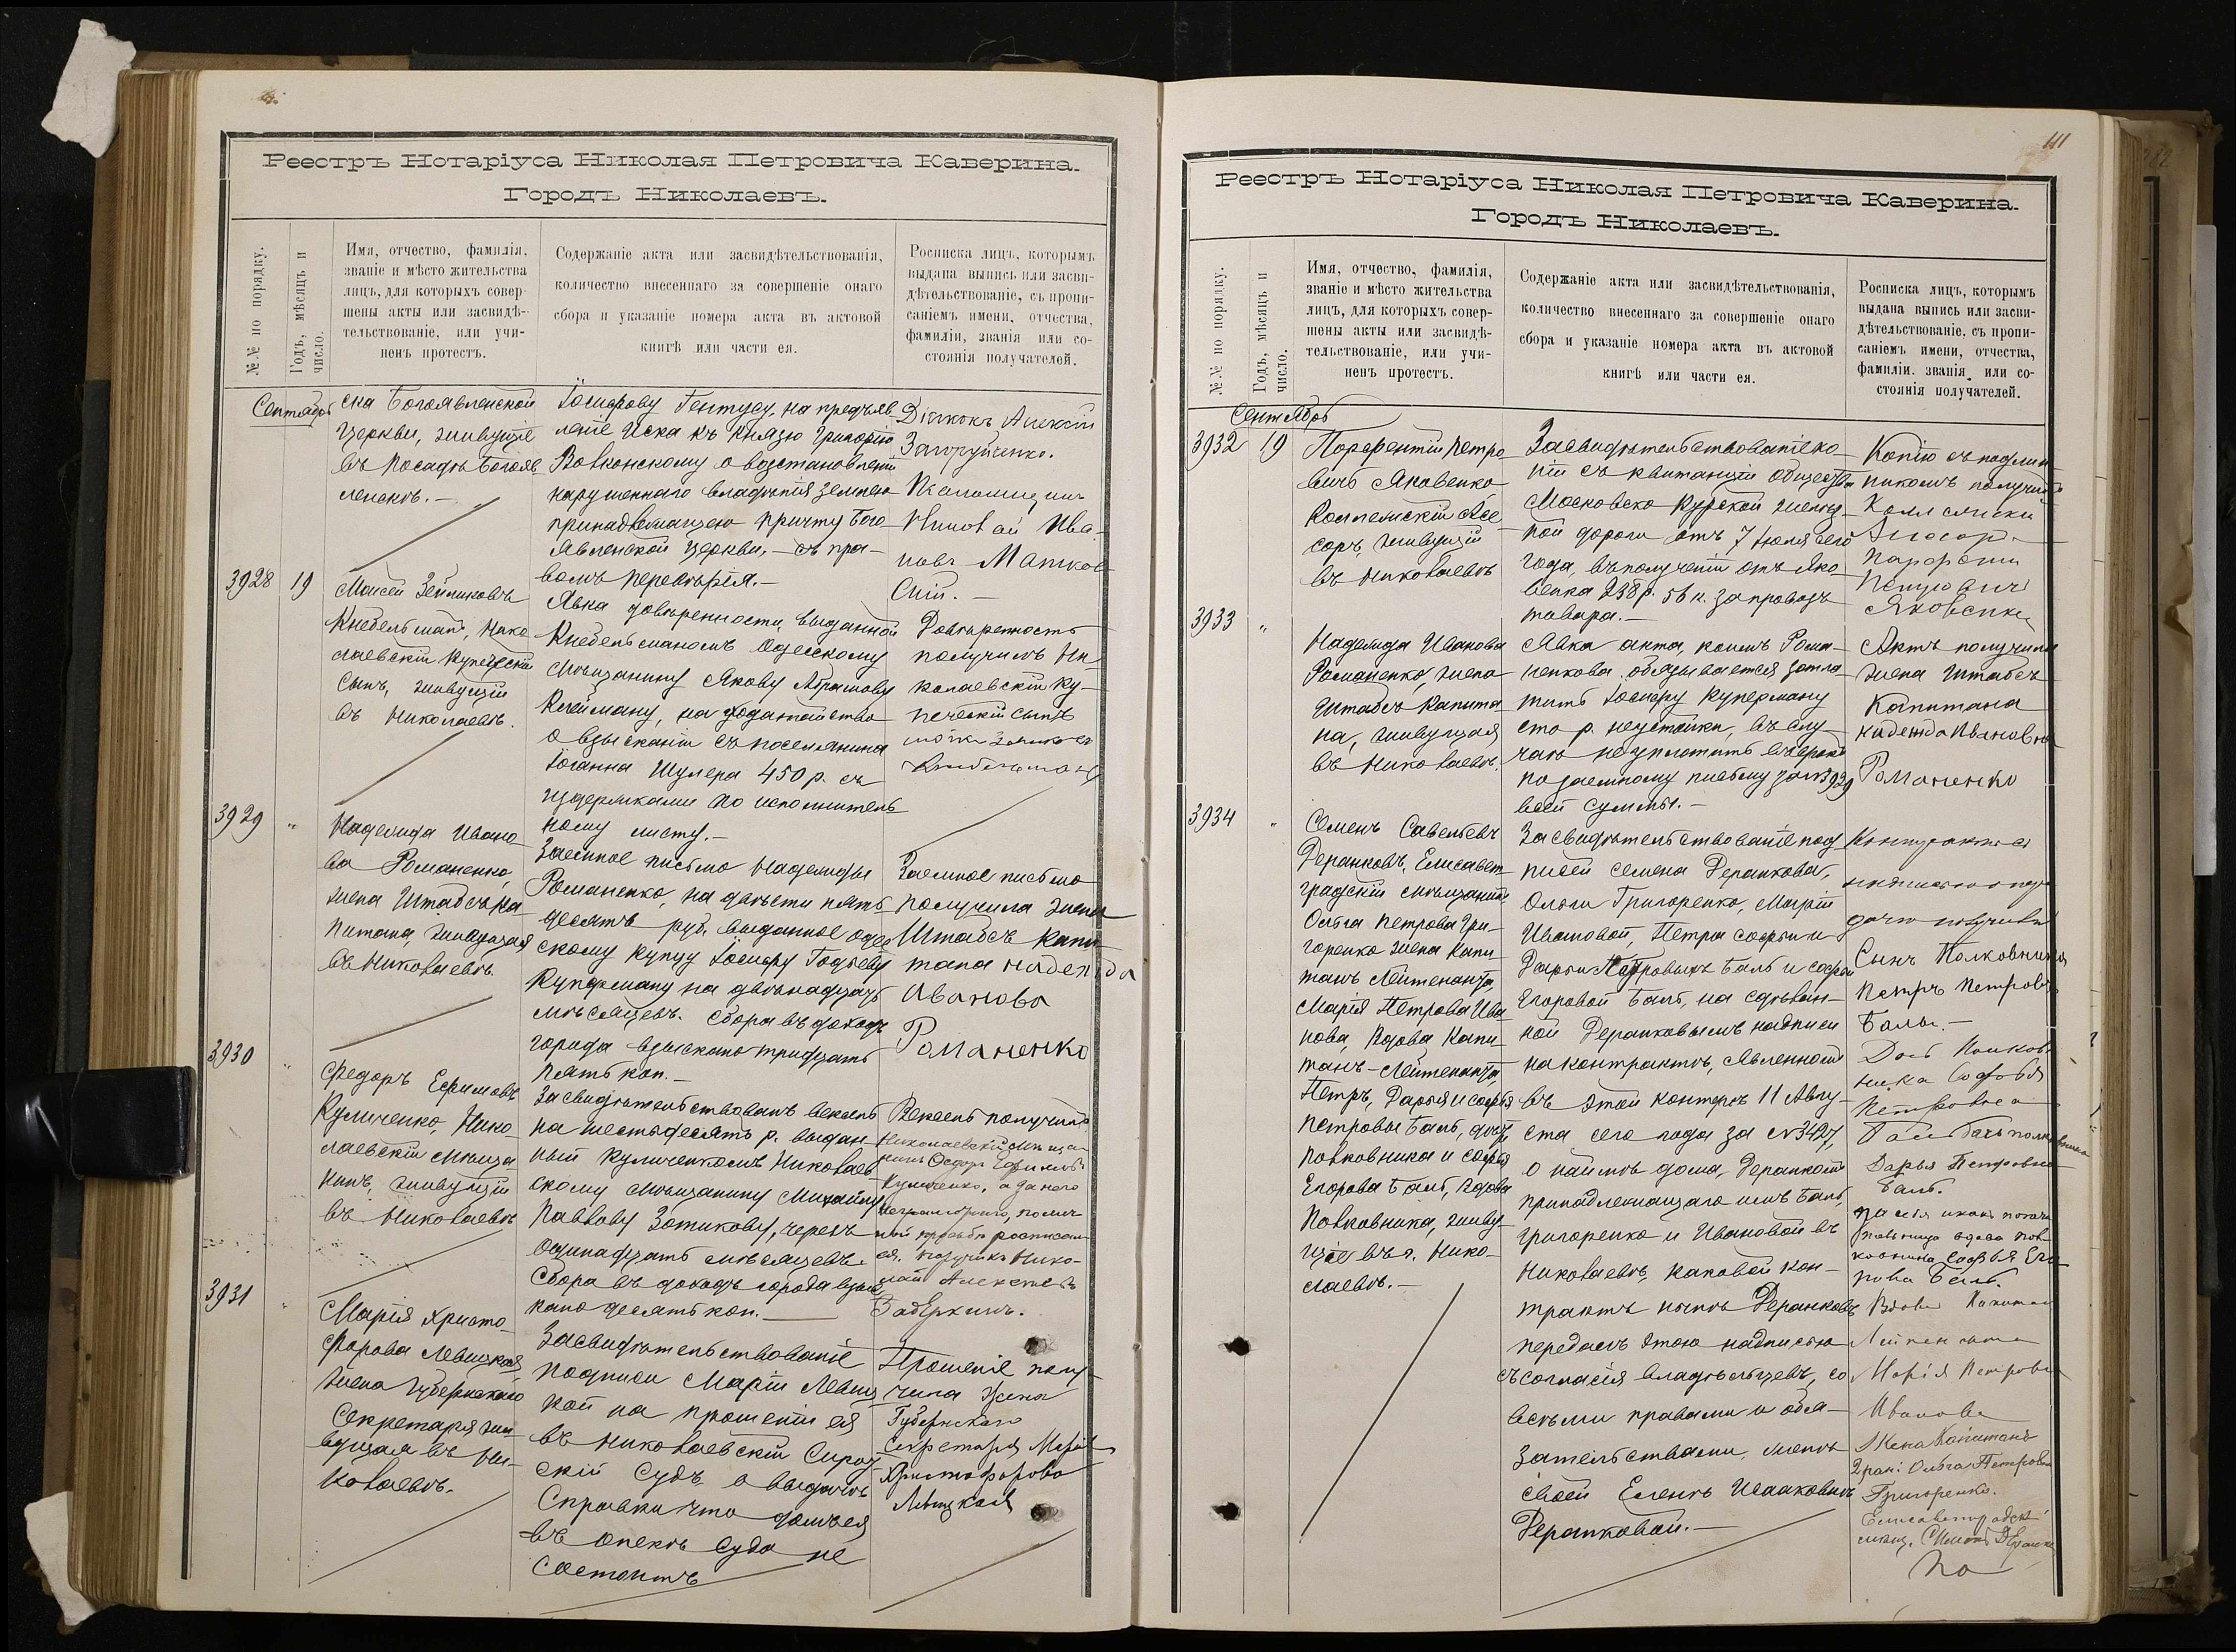 Реестръ Нотаріуса Николая Петровича Каверина.
Городъ Николаевъ.
№№ по порядку.
Годъ, мѣсяцъ и
число.
Имя, отчество, фамилія,
званіе и мѣсто жительства
лицъ, для которыхъ совер-
шены акты или засвидѣ-
тельствованіе, или учи-
ненъ протестъ.
Содержаніе акта или засвидѣтельствованія,
количество внесеннаго за совершеніе онаго
сбора и указаніе номера акта въ актовой
книгѣ или части ея.
Росписка лицъ, которымъ
выдана выпись или засви-
дѣтельствованіе, съ пропи-
саніемъ имени, отчества,
фамиліи, званія или со-
стоянія получателей.
Сентябрь
ска Богоявленской
Церкви, живущіе
въ Посадѣ Богояв
ленскѣ.-
Іосифову Гентусу, на предъяв
леніе иска къ Князю Григорію
Волконскому о возстановленіи
нарушеннаго владѣнія землею
принадлежащею причту Бого
явленской церкви, - съ пра-
вомъ передовѣрія.-
Діаконъ Алексій
Загоруйченко.
Николай Ива-
новъ Матков
скій.-
3928
19
Моисей Зейликовъ
Кнебельманъ, Нико
лаевскій Купеческій
сынъ, живущій
въ Николаевѣ.
Явка довѣренности, выданной
Кнебельманомъ Одесскому
мѣщанину Якову Абрамову
Клейману, на ходатайство
о взысканіи съ поселянина
Іоганна Шулера 450 р. съ
издержками по исполнитель
ному листу.-
Довѣренность
получилъ Ни
колаевскій ку-
печескій сынъ
Кнебельманъ
3929
"
Надежда Ивано
ва Романенко,
жена Штабсъ-Ка
питана, живущая
въ Николаевѣ.
Заемное письмо Надежды
Романенко, на двѣсти пять
десятъ руб. выданное одес
скому купцу Іосифу Годѣеву
Куперману на двѣнадцать
мѣсяцевъ. Сбора въ доходъ
города взыскано тридцать
пять коп.-
Заемное письмо
получила жена
Штабсъ Капи
тана Надежда
Иванова
Романенко
3930
"
Федоръ Ефимовъ
Куличенко, Нико
лаевскій мѣща
нинъ, живущій
въ Николаевѣ
Засвидѣтельствованъ вексель
на шестьдесятъ р. выдан
ный Куличенкомъ Николаев
скому мѣщанину Михаилу
Павлову Зотикову, черезъ
одинадцать мѣсяцевъ.
Сбора въ доходъ города взыс
кано десять коп.
Вексель получилъ
Николаевскій мѣща
нинъ Ѳедоръ Ефимовъ
Куличенко, а за него
неграмотнаго, по лич
ной просьбѣ росписал
ся, поручикъ Нико-
лай Алексѣевъ
3931
"
Марія Христо
форова Левицкая
жена Губернскаго
Секретаря жи
вущая въ Ни-
колаевѣ.
Засвидѣтельствованіе
подписи Маріи Левиц
кой на прошеніи ея
въ Николаевскій Сирот
скій Судъ о выдачѣ
справки что домъ ея
въ опекѣ Суда не
состоитъ
Прошеніе полу-
чила жена
Губернскаго
Секретаря Марія
Христофорова
Левицкая
111
Реестръ Нотаріуса Николая Петровича Каверина.
Городъ Николаевъ.
№№ по порядку.
Годъ, мѣсяцъ и
число.
Имя, отчество, фамилія,
званіе и мѣсто жительства
лицъ, для которыхъ совер-
шены акты или засвидѣ-
тельствованіе, или учи-
ненъ протестъ.
Содержаніе акта или засвидѣтельствованія,
количество внесеннаго за совершеніе онаго
сбора и указаніе номера акта въ актовой
книгѣ или части ея.
Росписка лицъ, которымъ
выдана выпись или засви-
дѣтельствованіе, съ пропи-
саніемъ имени, отчества,
фамиліи, званія или со-
стоянія получателей.
Сентябрь
3932
19
Порфентій Петро
вичъ Яковенко
Коллежскій Асе
соръ, живущій
въ Николаевѣ
Засвидѣтельствованіе ко
піи съ квитанціи Общества
Московско Курской желѣз
ной дороги отъ 7 Іюля сего
года, въ полученіи отъ Яко
венка 238 р. 56 к. за провозъ
товара.-
Копію съ подлин
никомъ получилъ
Яковенко
3933
"
Надежда Иванова
Романенко, жена
Штабсъ Капита
на, живущая
въ Николаевѣ.
Явка акта, коимъ Рома-
ненкова обязывается запла-
тить Іосифу Куперману
сто р. неустойки, въ слу-
чаѣ неуплатитъ въ срокъ
по заемному письму за №3929
всей суммы.-
Актъ получила
жена Штабсъ
Капитана
Надежда Ивановна
Романенко
3934
"
Семенъ Савельевъ
Деранковъ, Елисавет
градскій мѣщанинъ
Ольга Петрова Гри-
горенко жена Капи
танъ Лейтенанта,
Марія Петрова Ива
нова, вдова Капи
танъ-Лейтенанта,
Петръ, Дарья и Софья
Петровы Балъ, дѣти
Полковника и Софья
Егорова Балъ, вдова
Полковника, живу
щіе въ г. Нико-
лаевѣ.-
Засвидѣтельствованіе под
писей Семена Деранкова,
Ольги Григоренко, Маріи
Ивановой, Петра Софьи и
Дарьи Петровыхъ Балъ и Софьи
Егоровой Балъ, на сдѣлан-
ной Деранковымъ надписи
на контрактѣ, явленномъ
въ этой конторѣ 11 Авгу-
ста сего года за №3427,
о наймѣ дома, Деранкомъ
принадлежащаго имъ Балъ,
Григоренко и Ивановой въ
Николаевѣ, каковой кон-
трактъ нынѣ Деранковъ
передаетъ этою надписью
съ согласія владѣльцевъ, со
всѣми правами и обя-
зательствами, женѣ
своей Еленѣ Исааковнѣ
Деранковой.-
Сынъ Полковника
Петръ Петровъ
Балъ.-
Дочь Полков
ника Софья
Петровна
Дарья Петровна
Балъ.
Вдова Капитан
Лейтенанта
Марія Петрова
Иванова
Жена Капитанъ
Ольга Петрова
Григоренко.